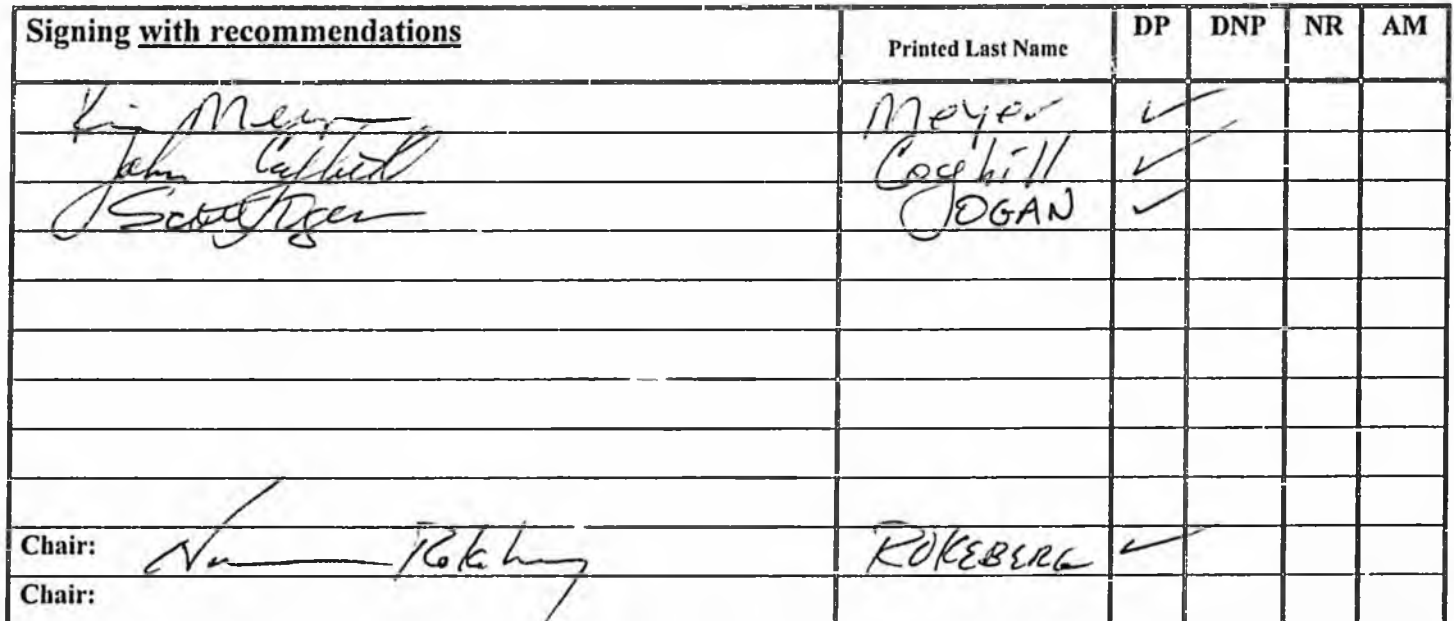 Signing with recommendations Printed Last Name DP DNP NR AM
Kim Meyer Meyer ✓
John Coghill Coghill ✓
Scott Ogan OGAN ✓
Chair: Norman Rokeberg ROKEBERG ✓
Chair: